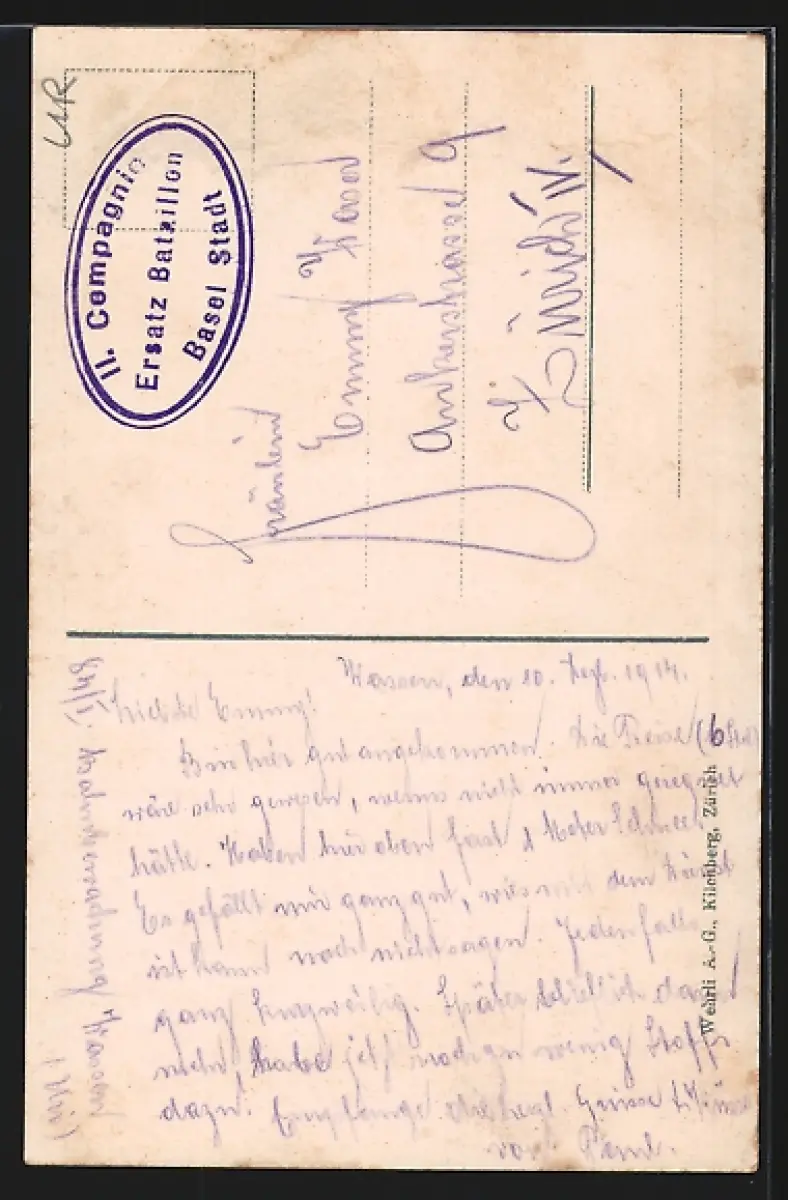 UR
II. Compagnie
Ersatz Bataillon
Basel Stadt
Fräulein
Emmy
Ankerstrasse 9
Zürich IV.
Wassen, den 10. Dez. 1914.
Liebste Emmy!
Bin hier gut angekommen. Die Reise (6 Std)
wäre sehr gewesen, wenns nicht immer geregnet
hätte. Haben hier oben fast 1 Meter Schnee.
Es gefällt mir ganz gut, wies mit dem Dienst
ist kann noch nicht sagen. Jedenfalls
ganz kurzweilig. Später
mehr, habe jetzt noch zu wenig Stoff
dazu. Empfange die herzl. Grüsse & Küsse
von Paul.
I/48. Bahnbewachung Wassen
(Uri)
Wehrli A.-G., Kilchberg, Zürich